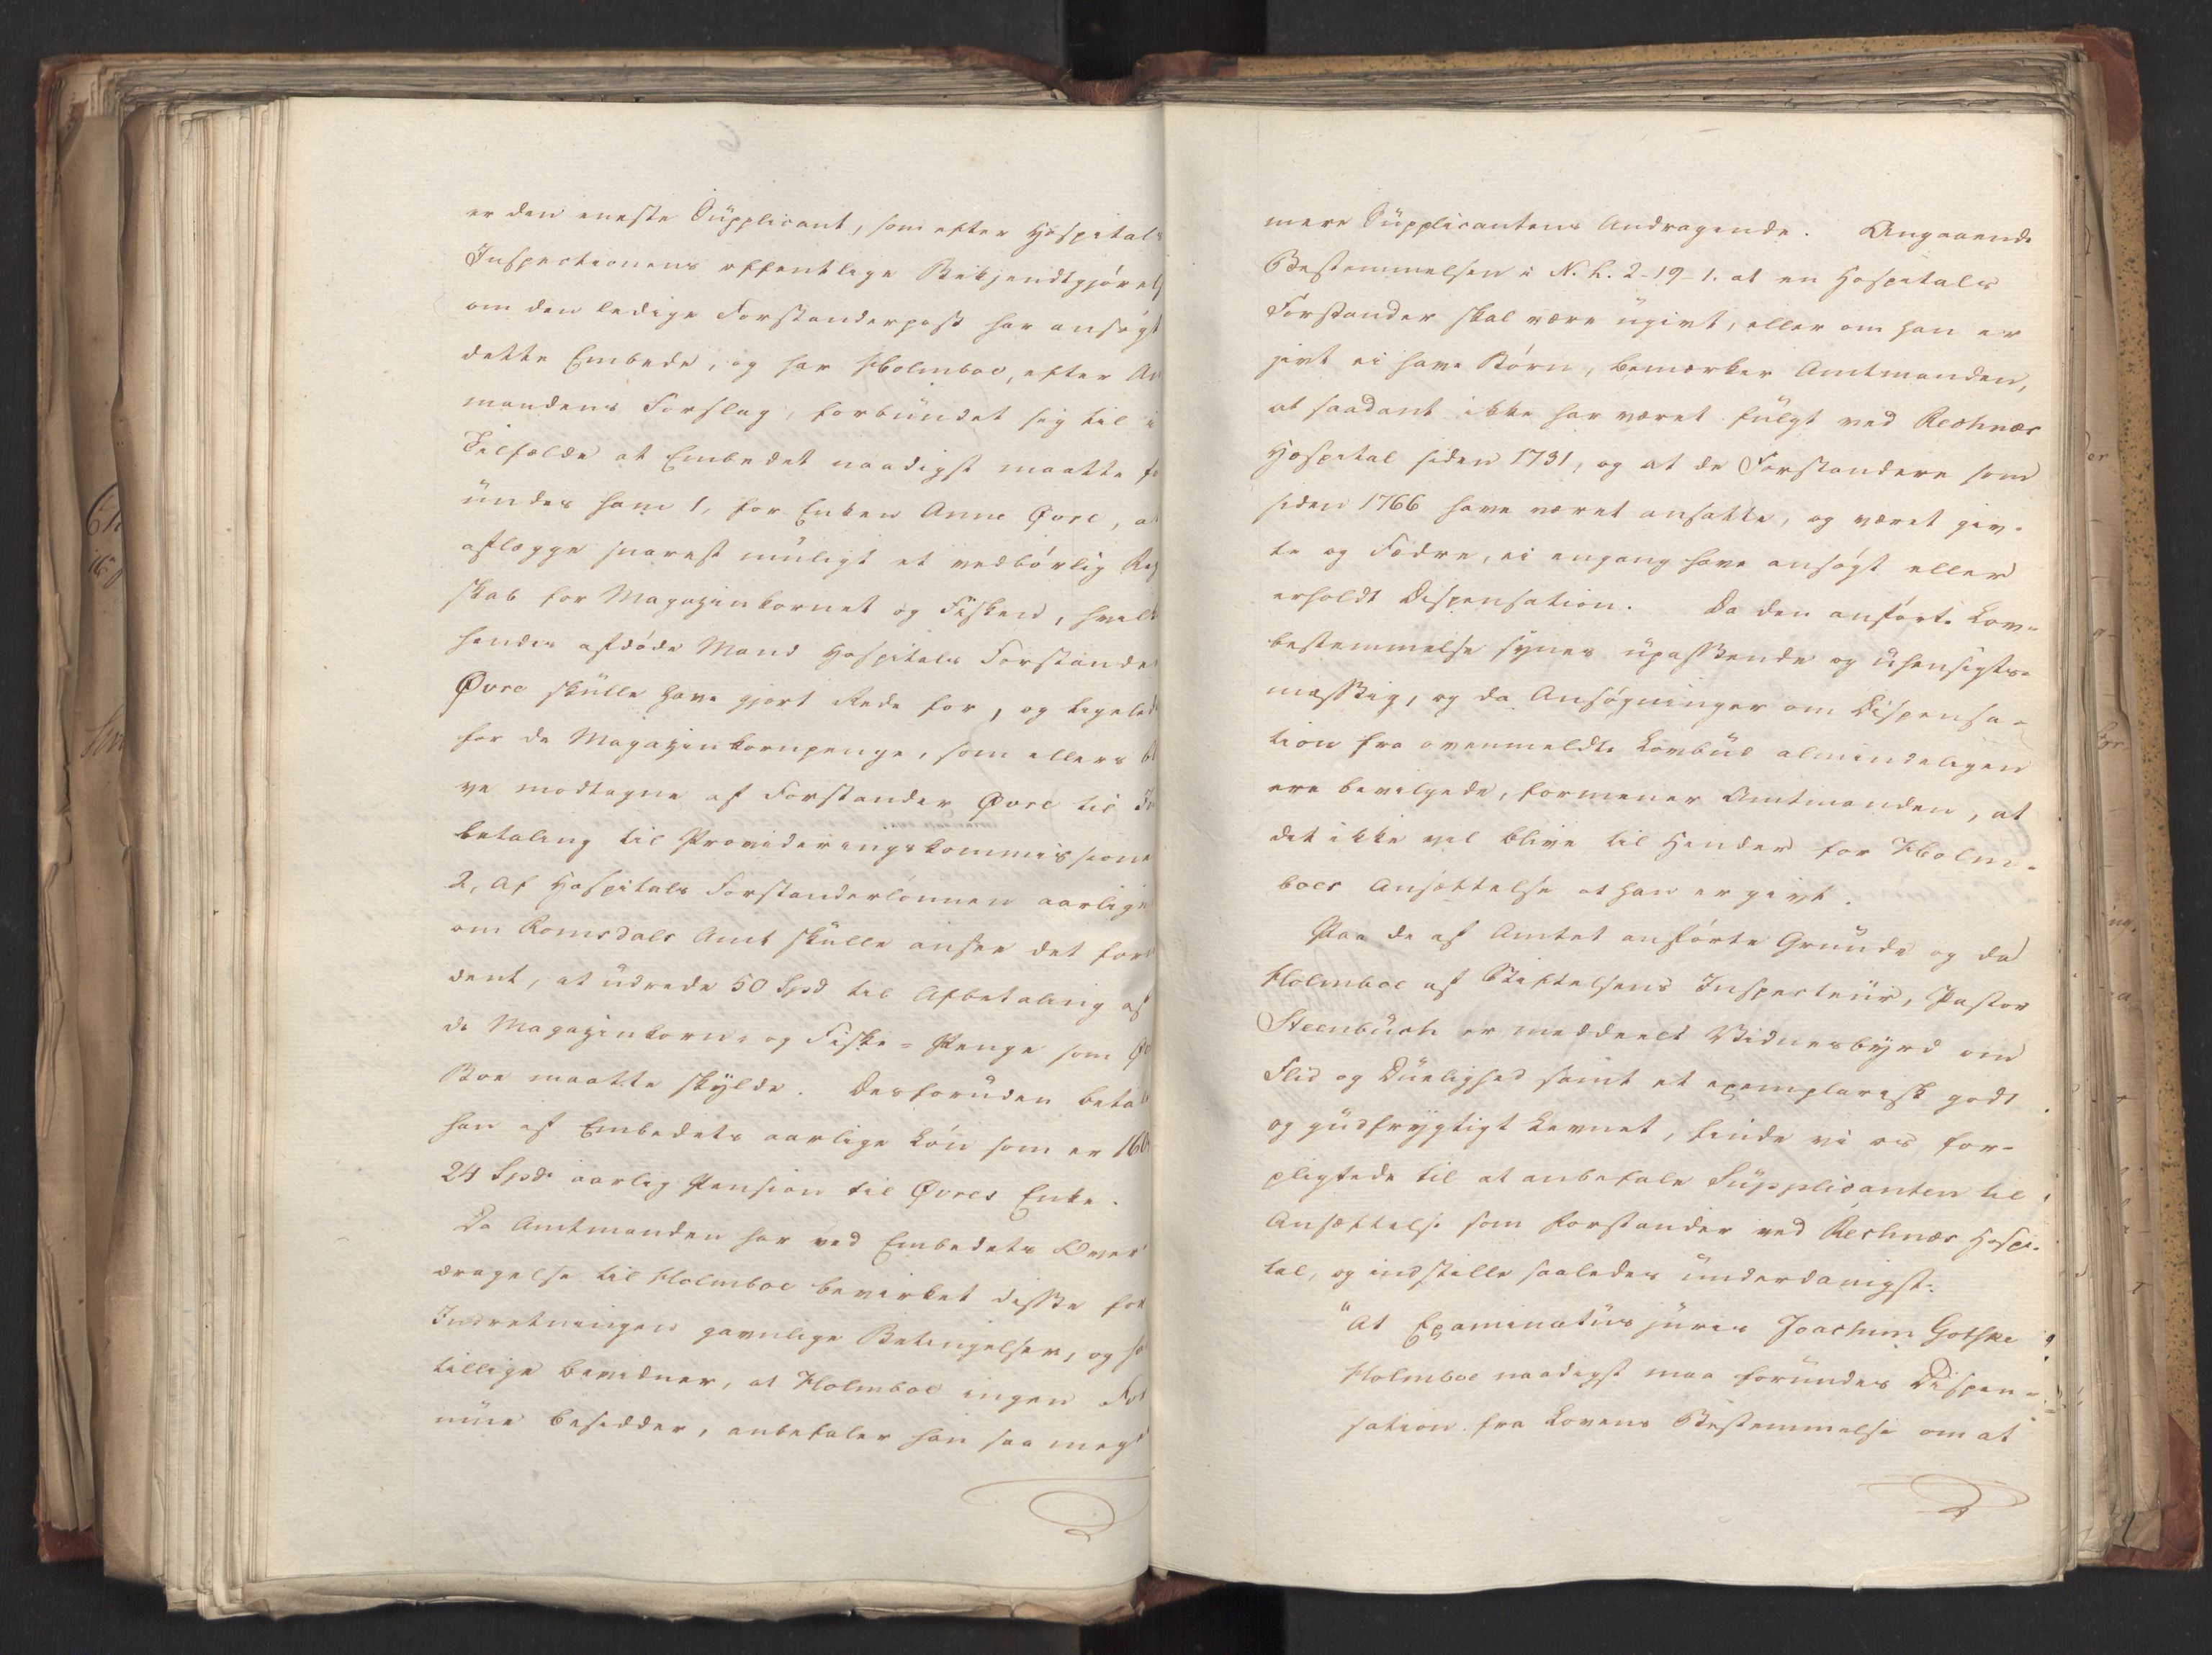 er den eneste Supplicant, som efter Hospitals
Inspectionens offentlige Bekjendtgjørels
om den ledige Forstanderpost har ansøgt
dette Embede, og har Holmboe, efter Am
mandens Forslag, forbundet sig til i
Tilfælde at Embedet naadigst maatte fo
undes ham 1, for Enken Anne Øvre, at
aflægge snarest muligt et vedbørlig Reg
skab for Magazinkornet og Fisken, hvilk
hendes afdøde Mand Hospitals Forstander
Øvre skulle have gjort Rede for, og ligeled
for de Magazinkornpenge, som ellers bl
ve modtagne af Forstander Øvre til In
betaling til Provideringskommissione
2, Af Hospitals Forstanderlønnen aarlige
om Romsdals Amt skulle ansee det forn
dent, at udrede 50 Spd til Afbetaling af
de Magazinkorn- og Fiske-Penge som Øv
Boe maatte skylde. Desforuden betal
han af Embedets aarlige Løn som er 160
24 Spd. aarlig Pension til Øvres Enke.
Da Amtmanden har ved Embedets Over
dragelse til Holmboe bevirket disse for
Indretningen gavnlige Betingelser, og so
tillige bevidner, at Holmboe ingen For
mue besidder, anbefaler han saa meg
mere Supplicantens Andragende. Angaaende
Bestemmelsen i N. L. 2-19-1. at en Hospitals
Forstander skal være ugivt, eller om han er
givt ei have Børn, bemærker Amtmanden,
at saadant ikke har været fulgt ved Rechnæs
Hospital siden 1731, og at de Forstandere som
siden 1766 have været ansatte, og været giv-
te og Fædre, ei engang have ansøgt eller
erholdt Dispensation. Da den anførte Lov-
bestemmelse synes upassende og uhensigts-
mæssig, og da Ansøgninger om Dispensa-
tion fra ovenmeldte Lovbud almindeligen
ere bevilgede, formener Amtmanden, at
det ikke vil blive til Hinder for Holm-
boes Ansættelse at han er givt.
Paa de af Amtet anførte Grunde og da
Holmboe af Stiftelsens Inspecteur, Pastor
Steenbuch er meddeelt Vidnesbyrd om
Flid og Duelighed samt et exemplarisk godt
og gudfrygtigt Levnet, finde vi os for-
pligtede til at anbefale Supplicanten til
Ansættelse som Forstander ved Rechnæs Hospi-
tal, og indstille saaledes underdanigst:
"At Examinatus juris Joachim Gotske
Holmboe naadigst maa forundes Dispen-
sation fra Lovens Bestemmelse om at